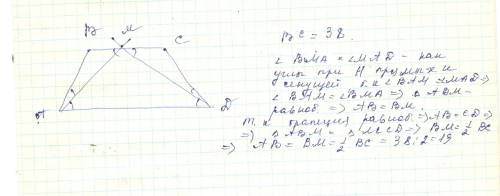 B M C
A D
BC = 38.
∠ BMA = ∠MAD - как
углы при || прямых и
секущей т.к ∠BAM = ∠MAD =>
∠ BAM = ∠BMA => △ ABM -
равноб. => AB = BM.
т.к трапеция равноб. => AB = CD =>
=> △ ABM = △ MCD => BM = 1/2 BC
=> AB = BM = 1/2 BC = 38 : 2 = 19